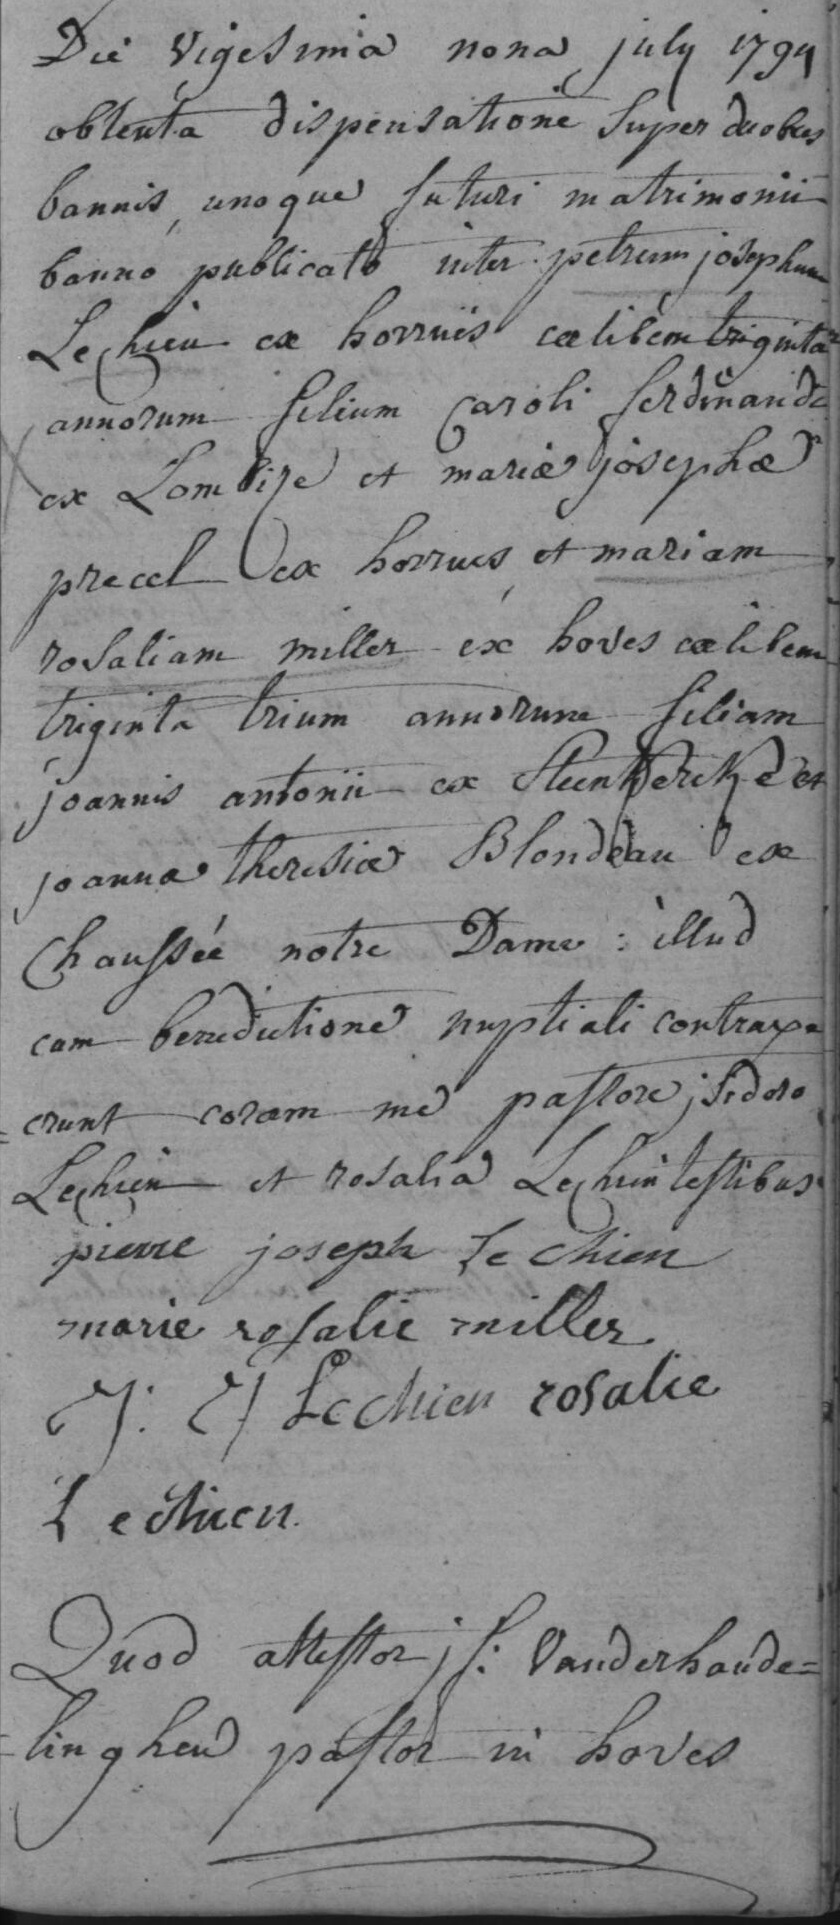 Die vigesima nona july 1794
obtenta dispensatione super duobus
bannis, unoque futuri matrimonii
banno publicato inter petrum josephum
Lechien ex horruis cœlibem triginta
annorum filium Caroli ferdinandi
ex Lombize et mariæ josephæ
precel ex horrues et mariam
rosaliam miller ex hoves cœlibem
triginta trium annorum filiam
joannis antonii ex Steenkercke et
joannæ theresiæ Blondeau ex
Chaussée notre Dame : illud
cum benedictione nuptiali contrax=
=erunt coram me pastore, isidoro
Lechien et rosalia Lechien testibus
pierre joseph Le chien
marie rosalie miller
J: J Lechien rosalie
Lechien.
Quod attestor j f: Vanderhaude=
=linghen pastor in hoves